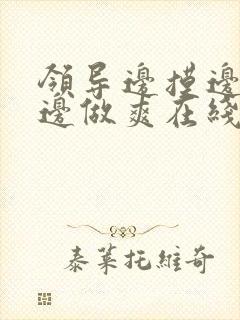 領导邊摸邊
邊做爽在綫
泰莱托維奇